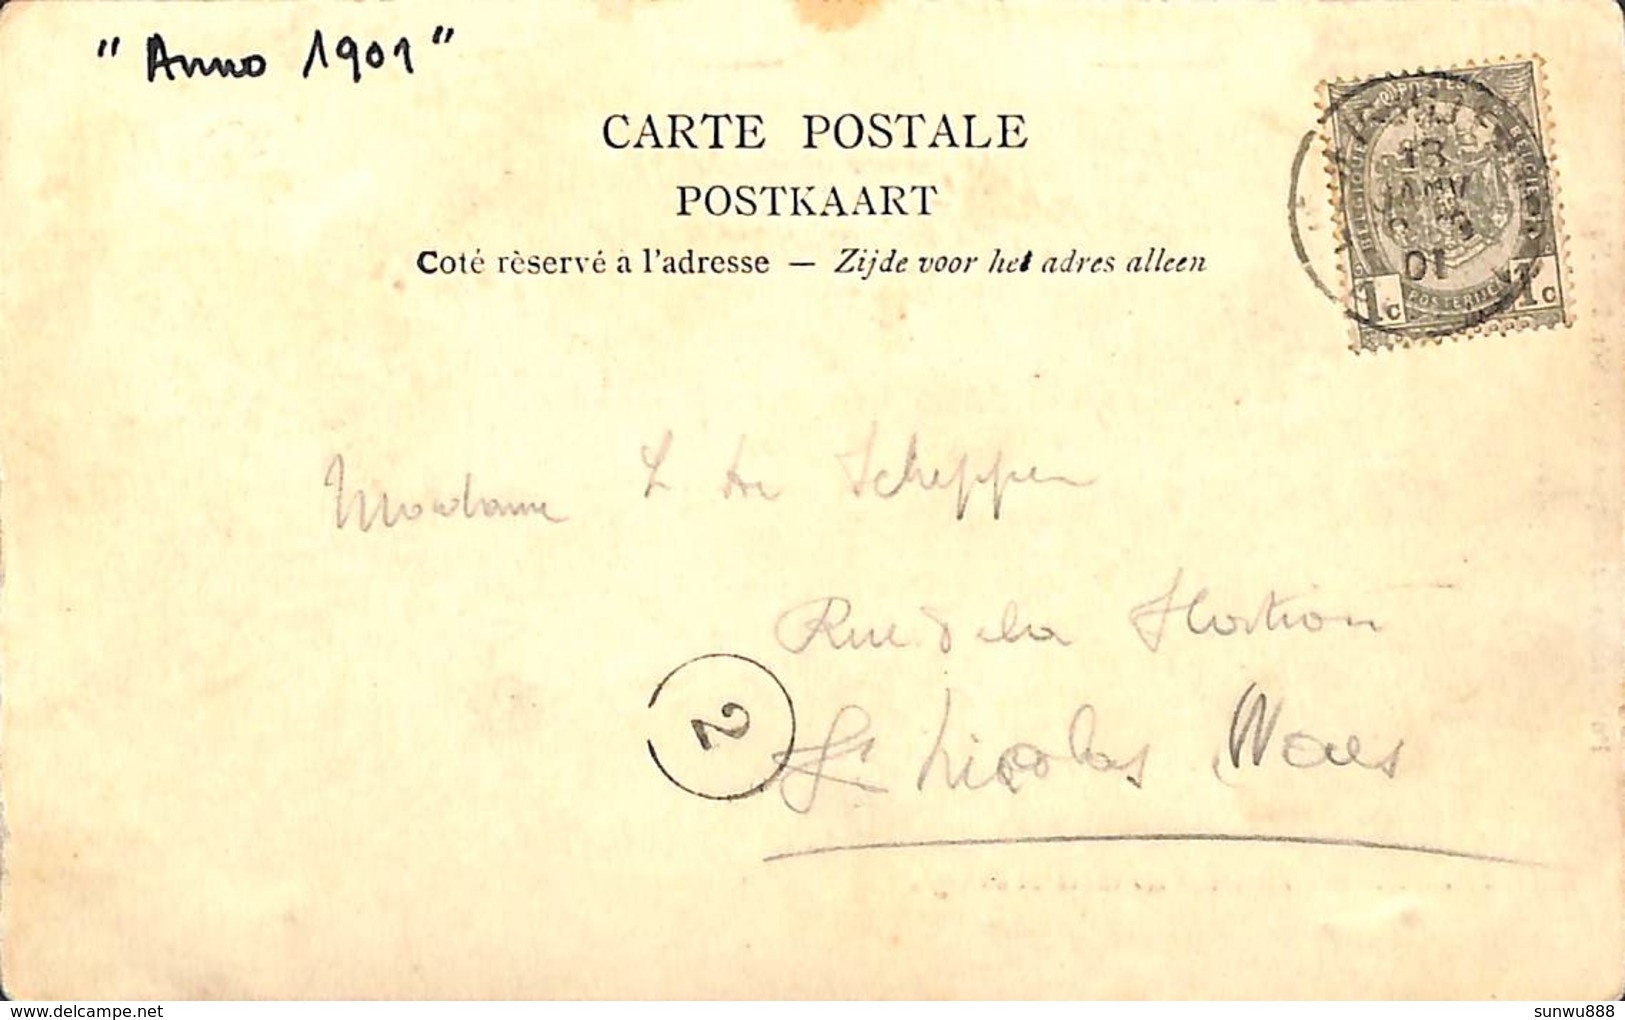 " Anno 1901 "
CARTE POSTALE
POSTKAART
Coté rèservé à l'adresse — Zijde voor het adres alleen
13
JANV
01
1c 1c
Madame L de Scheppen
Rue de la Station
2
St Nicolas Waes
delcampe.net
sunwu888